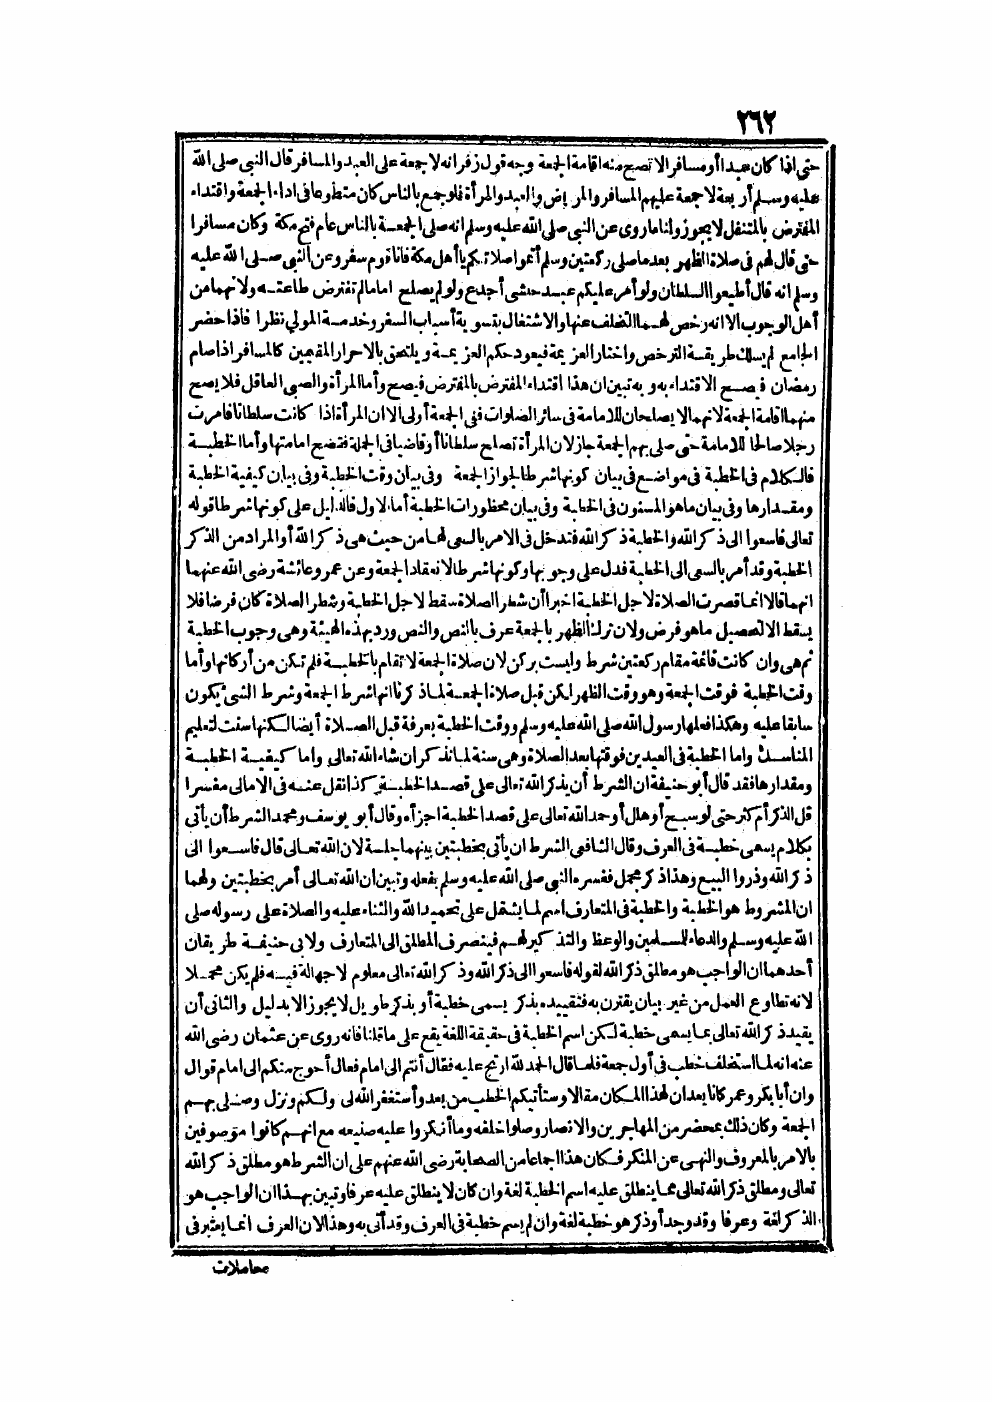 ٢٦٢
حتى اذا كان عبدا أو مسافر الا تصح منه اقامة الجمعة وجه قول زفر انه لا جمعة على العبد والمسافر قال النبي صلى الله
عليه وسلم أربعة لا جمعة عليهم المسافر والمريض والعبد والمرأة فلو جمع بالناس كان متطوعا فى اداء الجمعة واقتداء
المفترض بالمتنفل لا يجوز ولنا ما روى عن النبي صلى الله عليه وسلم انه صلى الجمعة بالناس عام فتح مكة وكان مسافرا
حتى قال لهم فى صلاة الظهر بعد ما صلى ركعتين وسلم أتموا صلاتكم يا أهل مكة فانا قوم سفر وعن النبي صلى الله عليه
وسلم انه قال أطيعوا السلطان ولو أمر عليكم عبد حبشى أجدع ولو لم يصلح اماما لم تفترض طاعته ولانهما من
أهل الوجوب الا انه رخص لهما التخلف عنها والاشتغال بتسوية أسباب السفر وخدمة المولي نظرا فاذا حضر
الجامع لم يسلك طريقة الترخص واختار العزيمة فيعود حكم العزيمة ويلتحق بالاحرار المقيمين كالمسافر اذا صام
رمضان فيصح الاقتداء به وبه تبين ان هذا اقتداء المفترض بالمفترض فيصح وأما المرأة والصبى العاقل فلا يصح
منهما اقامة الجمعة لانهما لا يصلحان للامامة فى سائر الصلوات ففى الجمعة أولى الا ان المرأة اذا كانت سلطانا فامرت
رجلا صالحا للامامة حتى صلى بهم الجمعة جاز لان المرأة تصلح سلطانا أو قاضيا فى الجملة فتصح امامتها وأما الخطبة
فالكلام فى الخطبة فى مواضع فى بيان كونها شرطا لجواز الجمعة وفى بيان وقت الخطبة وفى بيان كيفية الخطبة
ومقدارها وفى بيان ما هو المسنون فى الخطبة وفى بيان محظورات الخطبة أما الاول فالدليل على كونها شرطا قوله
تعالى فاسعوا الى ذكر الله والخطبة ذكر الله فتدخل فى الامر بالسعى لها من حيث هى ذكر الله أو المراد من الذكر
الخطبة وقد أمر بالسعى الى الخطبة فدل على وجوبها وكونها شرطا لانعقاد الجمعة وعن عمر وعائشة رضى الله عنهما
انهما قالا انما قصرت الصلاة لاجل الخطبة اخبرا أن شطر الصلاة سقط لاجل الخطبة وشطر الصلاة كان فرضا فلا
يسقط الا لتحصيل ما هو فرض ولان ترك الظهر بالجمعة عرف بالنص والنص ورد بهذه الهيئة وهى وجوب الخطبة
ثم هى وان كانت قائمة مقام ركعتين شرط وليست بركن لان صلاة الجمعة لا تقام بالخطبة فلم تكن من أركانها وأما
وقت الخطبة فوقت الجمعة وهو وقت الظهر لكن قبل صلاة الجمعة لما ذكرنا انها شرط الجمعة وشرط الشئ يكون
سابقا عليه وهكذا فعلها رسول الله صلى الله عليه وسلم ووقت الخطبة بعرفة قبل الصلاة أيضا لكنها سنت لتعليم
المناسك وأما الخطبة فى العيدين فوقتها بعد الصلاة وهى سنة لما نذكر ان شاء الله تعالى واما كيفية الخطبة
ومقدارها فقد قال أبو حنيفة ان الشرط أن يذكر الله تعالى على قصد الخطبة كذا نقل عنه فى الامالى مفسرا
قل الذكر أم كثر حتى لو سبح أو هلل أو حمد الله تعالى على قصد الخطبة اجزأه وقال أبو يوسف ومحمد الشرط أن يأتى
بكلام يسمى خطبة فى العرف وقال الشافعى الشرط ان يأتى بخطبتين بينهما جلسة لان الله تعالى قال فاسعوا الى
ذكر الله وذروا البيع وهذا ذكر مجمل ففسره النبي صلى الله عليه وسلم بفعله وتبين ان الله تعالى أمر بخطبتين ولهما
ان المشروط هو الخطبة والخطبة فى المتعارف اسم لما يشتمل على تحميد الله والثناء عليه والصلاة على رسوله صلى
الله عليه وسلم والدعاء للمسلمين والوعظ والتذكير لهم فينصرف المطلق الى المتعارف ولابى حنيفة طريقان
أحدهما ان الواجب هو مطلق ذكر الله لقوله فاسعوا الى ذكر الله وذكر الله تعالى معلوم لا جهالة فيه فلم يكن مجملا
لانه تطاوع العمل من غير بيان يقترن به فتقييده بذكر يسمى خطبة أو بذكر طويل لا يجوز الا بدليل والثانى أن
يقيد ذكر الله تعالى بما يسمى خطبة لكن اسم الخطبة فى حقيقة اللغة يقع على ما قلنا فانه روى عن عثمان رضى الله
عنه انه لما استخلف خطب فى أول جمعة فلما قال الحمد لله ارتج عليه فقال أنتم الى امام فعال أحوج منكم الى امام قوال
وان أبا بكر وعمر كانا يعدان لهذا المكان مقالا وستأتيكم الخطب من بعد وأستغفر الله لى ولكم ونزل وصلى بهم
الجمعة وكان ذلك بمحضر من المهاجرين والانصار وصلوا خلفه وما أنكروا عليه صنيعه مع انهم كانوا موصوفين
بالامر بالمعروف والنهى عن المنكر فكان هذا اجماعا من الصحابة رضى الله عنهم على ان الشرط هو مطلق ذكر الله
تعالى ومطلق ذكر الله تعالى مما ينطلق عليه اسم الخطبة لغة وان كان لا ينطلق عليه عرفا وتبين بهذا ان الواجب هو
الذكر لغة وعرفا وقد وجد أو ذكر هو خطبة لغة وان لم يسم خطبة فى العرف وقد أتى به وهذا لان العرف انما يعتبر فى
معاملات